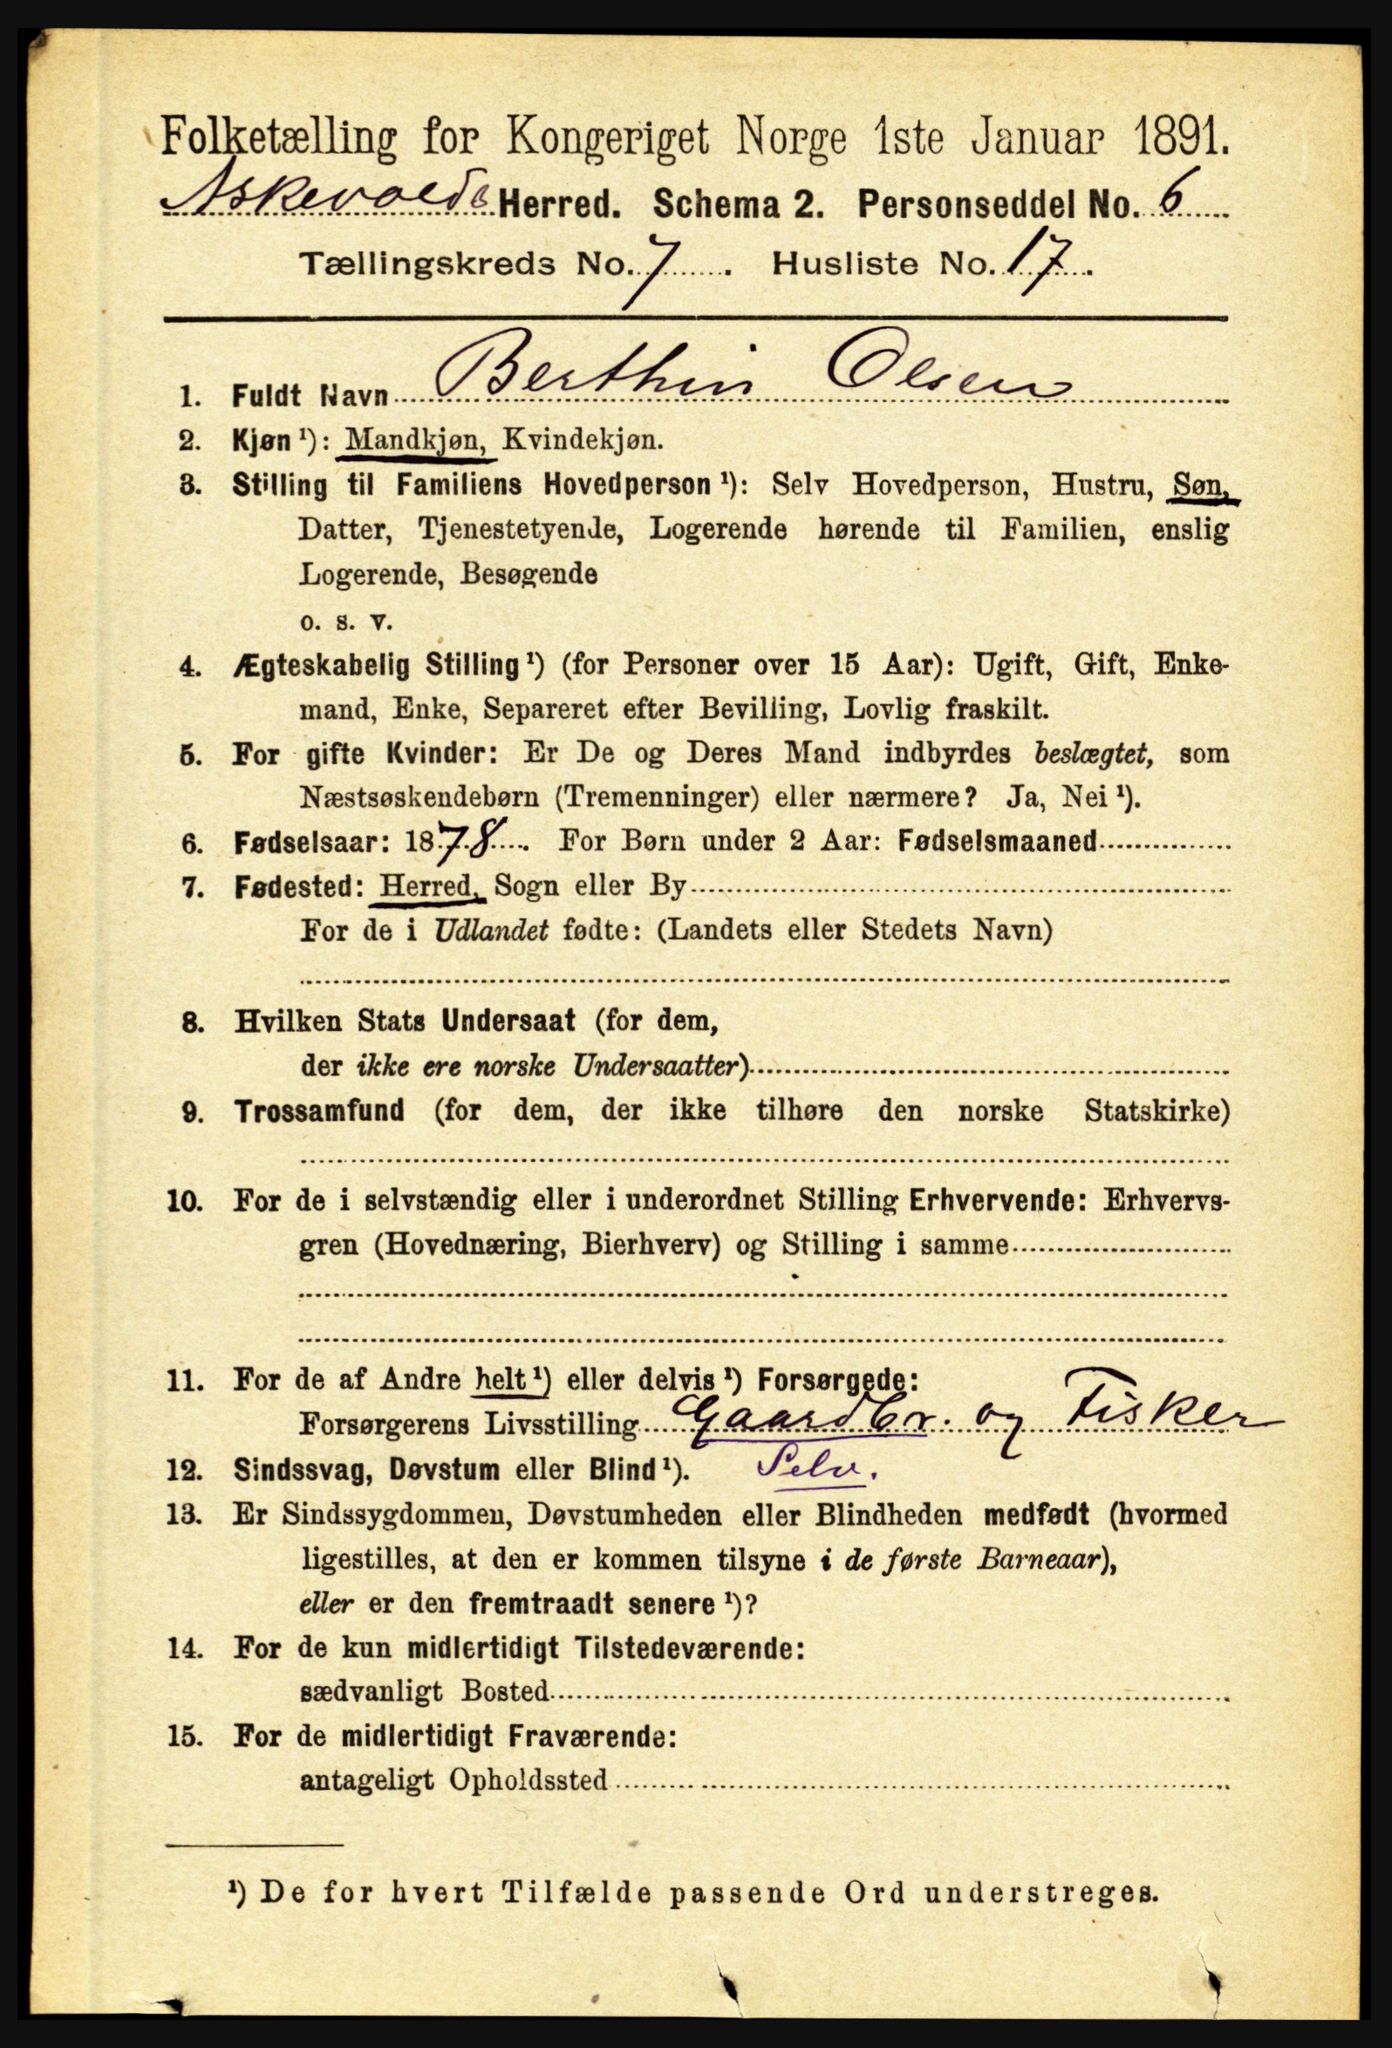 Folketælling for Kongeriget Norge 1ste Januar 1891.
Askevolds Herred. Schema 2. Personseddel No. 6
Tællingskreds No. 7. Husliste No. 17.
1. Fuldt Navn Berthin Olsen
2. Kjøn ¹): Mandkjøn, Kvindekjøn.
3. Stilling til Familiens Hovedperson ¹): Selv Hovedperson, Hustru, Søn,
Datter, Tjenestetyende, Logerende hørende til Familien, enslig
Logerende, Besøgende
o. s. v.
4. Ægteskabelig Stilling ¹) (for Personer over 15 Aar): Ugift, Gift, Enke-
mand, Enke, Separeret efter Bevilling, Lovlig fraskilt.
5. For gifte Kvinder: Er De og Deres Mand indbyrdes beslægtet, som
Næstsøskendebørn (Tremenninger) eller nærmere? Ja, Nei ¹).
6. Fødselsaar: 1878. For Børn under 2 Aar: Fødselsmaaned
7. Fødested: Herred, Sogn eller By
For de i Udlandet fødte: (Landets eller Stedets Navn)
8. Hvilken Stats Undersaat (for dem,
der ikke ere norske Undersaatter)
9. Trossamfund (for dem, der ikke tilhøre den norske Statskirke)
10. For de i selvstændig eller i underordnet Stilling Erhvervende: Erhvervs-
gren (Hovednæring, Bierhverv) og Stilling i samme
11. For de af Andre helt ¹) eller delvis ¹) Forsørgede:
Forsørgerens Livsstilling Gaardbr. og Fisker
12. Sindssvag, Døvstum eller Blind ¹). Selv.
13. Er Sindssygdommen, Døvstumheden eller Blindheden medfødt (hvormed
ligestilles, at den er kommen tilsyne i de første Barneaar),
eller er den fremtraadt senere ¹)?
14. For de kun midlertidigt Tilstedeværende:
sædvanligt Bosted
15. For de midlertidigt Fraværende:
antageligt Opholdssted
¹) De for hvert Tilfælde passende Ord understreges.